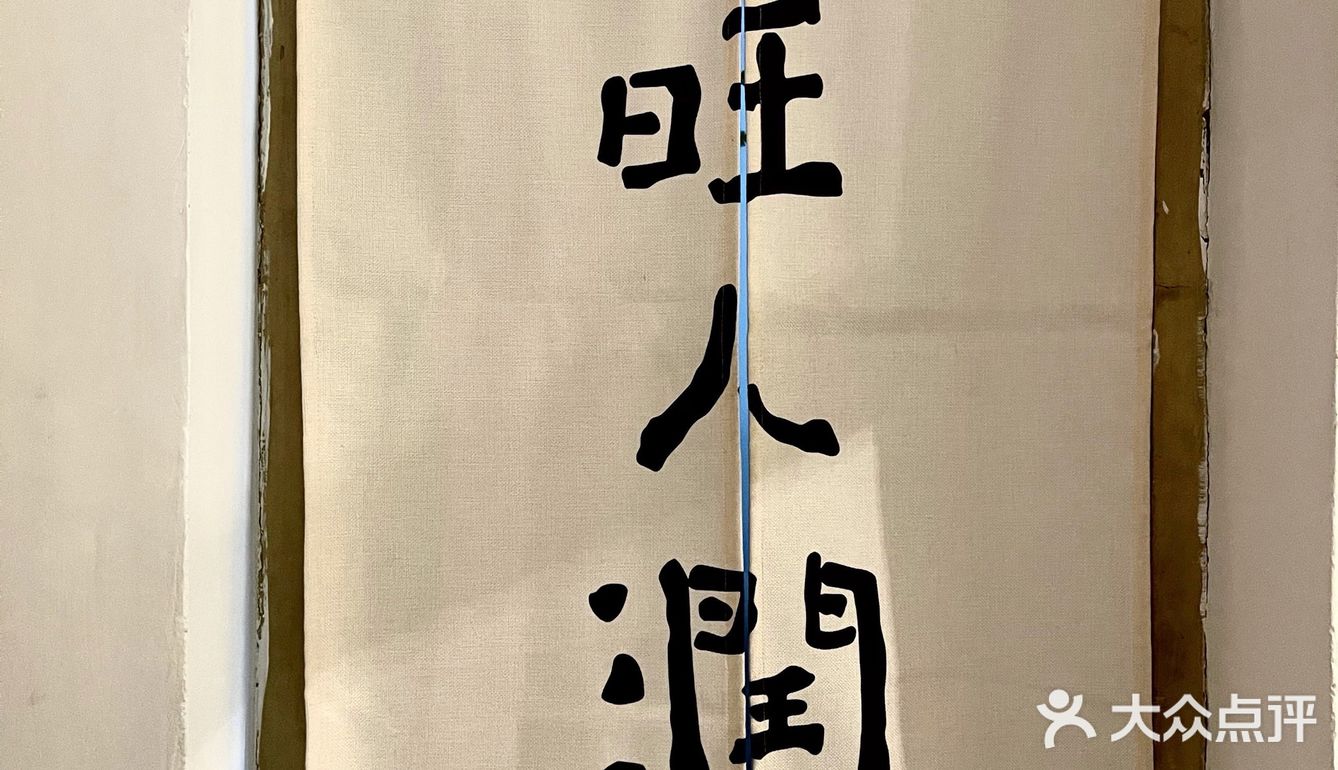 旺
人
潤
大众点评